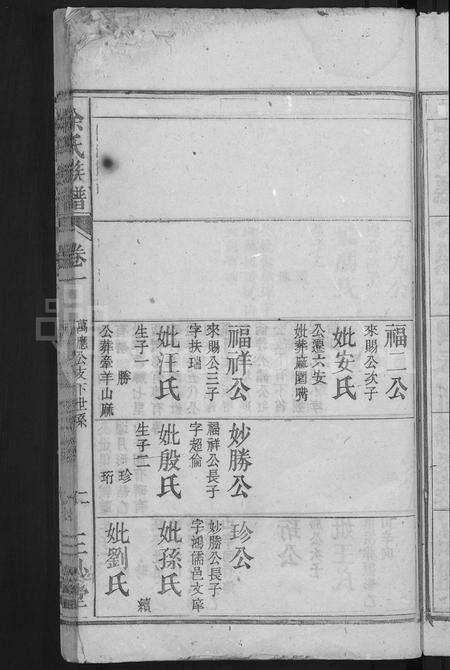 福二公
來賜公次子
妣安氏
公遷六安
妣葬麻園嘴
福祥公
來賜公三子
字扶瑞
妣汪氏
生子二
勝
公葬牽羊山麻
妙勝公
福祥公長子
字超倫
妣殷氏
生子二
珍
珩
珍公
妙勝公長子
字鴻儒邑文庠
妣孫氏
續
妣劉氏
徐氏族譜
卷一
萬應公支下世系